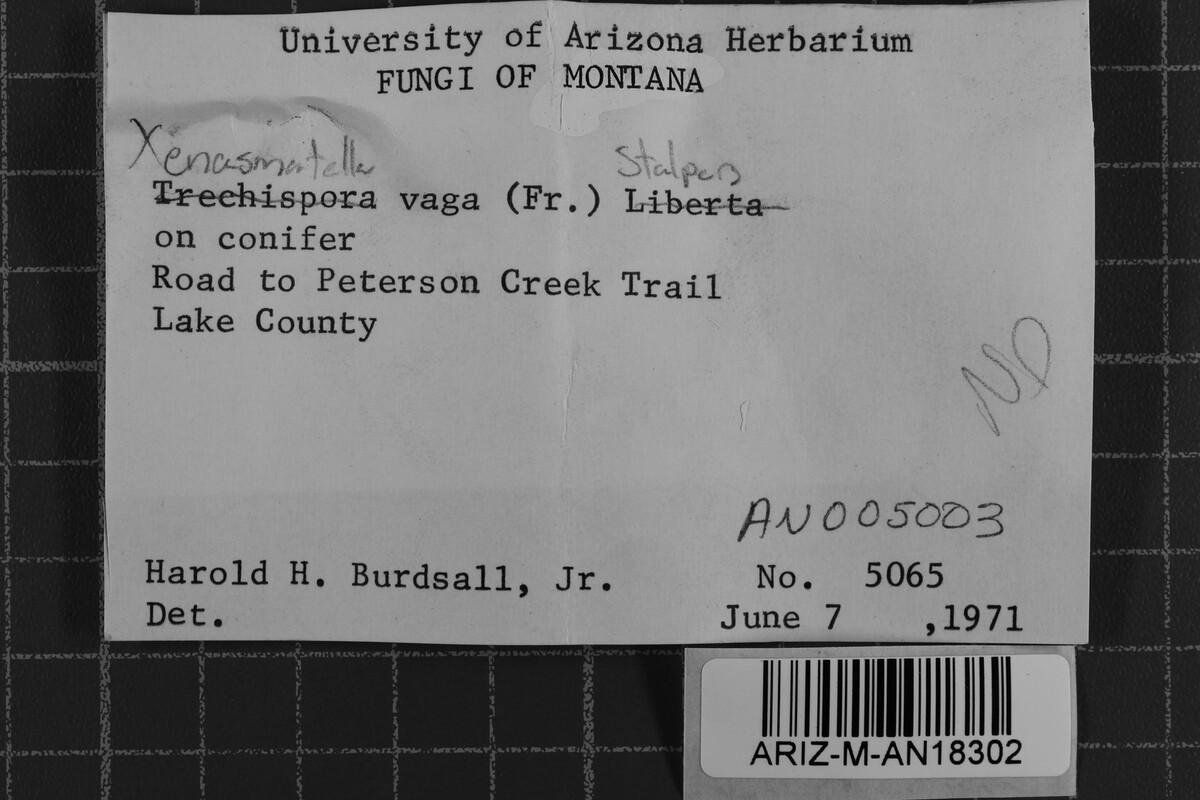 University of Arizona Herbarium
FUNGI OF MONTANA
Xenasmatella Stalpers
Trechispora vaga (Fr.) Liberta
on conifer
Road to Peterson Creek Trail
Lake County
ND
AN005003
Harold H. Burdsall, Jr. No. 5065
Det. June 7 ,1971
ARIZ-M-AN18302